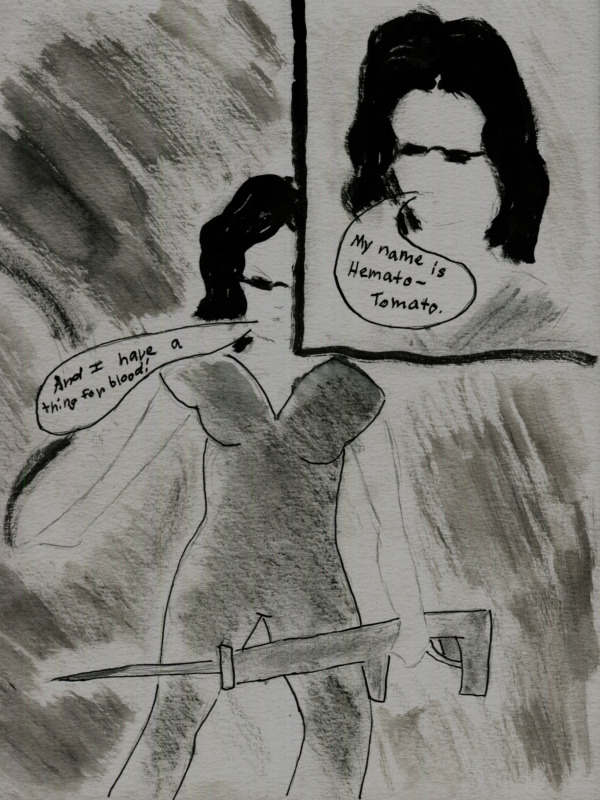 My name is
Hemato-
Tomato.
And I have a
thing for blood!